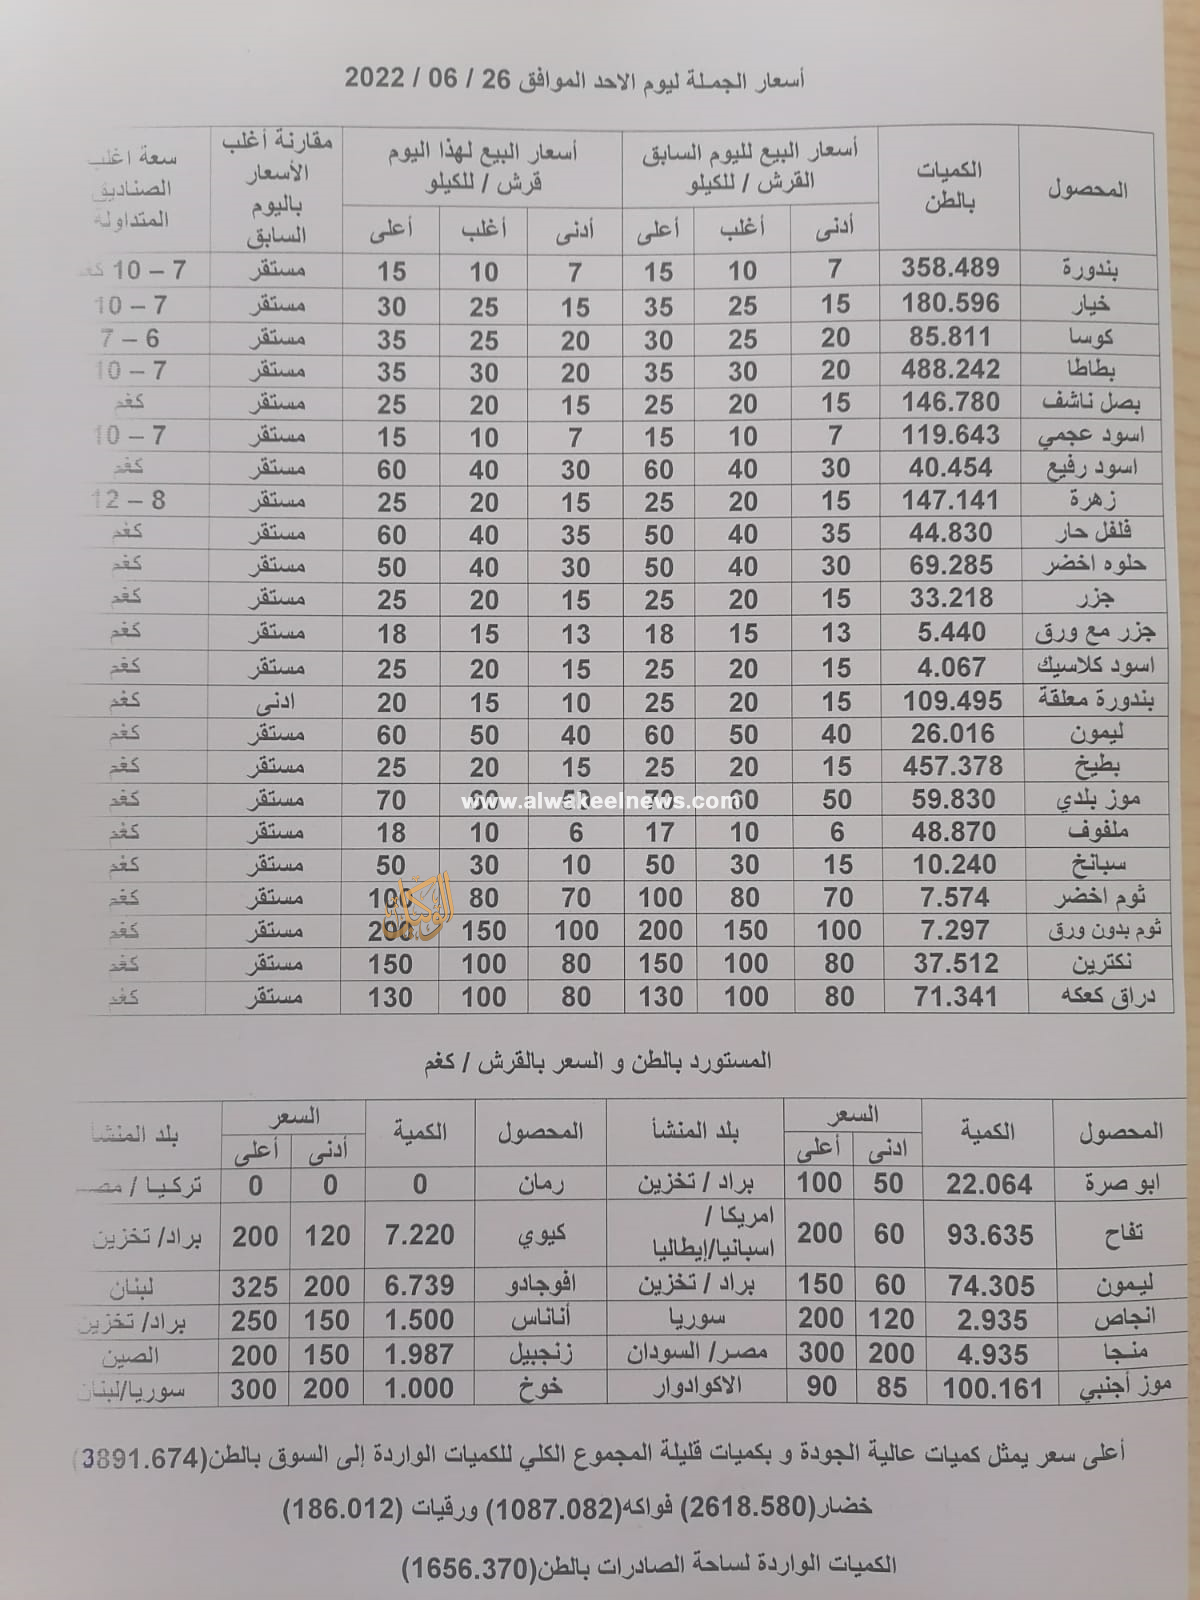 أسعار الجملة ليوم الاحد الموافق 26 / 06 / 2022
المحصول الكميات بالطن أسعار البيع لليوم السابق القرش / للكيلو أسعار البيع لهذا اليوم قرش / للكيلو مقارنة أغلب الأسعار باليوم السابق سعة اغلب الصناديق المتداولة
أدنى أغلب أعلى أدنى أغلب أعلى
بندورة 358.489 7 10 15 7 10 15 مستقر 7 – 10 كغم
خيار 180.596 15 25 35 15 25 30 مستقر 7 – 10
كوسا 85.811 20 25 30 20 25 35 مستقر 6 – 7
بطاطا 488.242 20 30 35 20 30 35 مستقر 7 – 10
بصل ناشف 146.780 15 20 25 15 20 25 مستقر كغم
اسود عجمي 119.643 7 10 15 7 10 15 مستقر 7 – 10
اسود رفيع 40.454 30 40 60 30 40 60 مستقر كغم
زهرة 147.141 15 20 25 15 20 25 مستقر 8 – 12
فلفل حار 44.830 35 40 50 35 40 60 مستقر كغم
حلوه اخضر 69.285 30 40 50 30 40 50 مستقر كغم
جزر 33.218 15 20 25 15 20 25 مستقر كغم
جزر مع ورق 5.440 13 15 18 13 15 18 مستقر كغم
اسود كلاسيك 4.067 15 20 25 15 20 25 مستقر كغم
بندورة معلقة 109.495 15 20 25 10 15 20 ادنى كغم
ليمون 26.016 40 50 60 40 50 60 مستقر كغم
بطيخ 457.378 15 20 25 15 20 25 مستقر كغم
موز بلدي 59.830 50 60 70 50 60 70 مستقر كغم
www.alwakeelnews.com
ملفوف 48.870 6 10 17 6 10 18 مستقر كغم
سبانخ 10.240 15 30 50 10 30 50 مستقر كغم
ثوم اخضر 7.574 70 80 100 70 80 100 مستقر كغم
الوكيل
ثوم بدون ورق 7.297 100 150 200 100 150 200 مستقر كغم
نكترين 37.512 80 100 150 80 100 150 مستقر كغم
دراق كعكه 71.341 80 100 130 80 100 130 مستقر كغم
المستورد بالطن و السعر بالقرش / كغم
المحصول الكمية السعر بلد المنشأ المحصول الكمية السعر بلد المنشأ
ادنى أعلى أدنى أعلى
ابو صرة 22.064 50 100 براد / تخزين رمان 0 0 0 تركيا /
تفاح 93.635 60 200 امريكا / اسبانيا/إيطاليا كيوي 7.220 120 200 براد/ تخزين
ليمون 74.305 60 150 براد / تخزين افوجادو 6.739 200 325 لبنان
انجاص 2.935 120 200 سوريا أناناس 1.500 150 250 براد/ تخزين
منجا 4.935 200 300 مصر/ السودان زنجبيل 1.987 150 200 الصين
موز أجنبي 100.161 85 90 الاكوادوار خوخ 1.000 200 300 سوريا/لبنان
أعلى سعر يمثل كميات عالية الجودة و بكميات قليلة المجموع الكلي للكميات الواردة إلى السوق بالطن(3891.674)
خضار(2618.580) فواكه(1087.082) ورقيات (186.012)
الكميات الواردة لساحة الصادرات بالطن(1656.370)